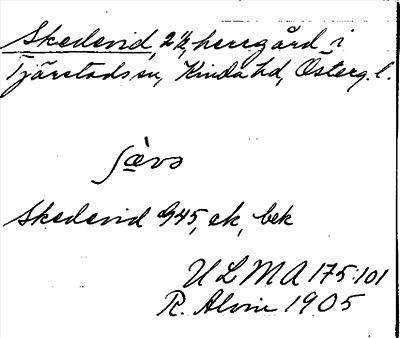 Skedevid, 2 ½, herrgård i
Tjärstads sn, Kinda hd, Österg. l.
Skedevid G45, ek, bek
ULMA 175:101
R. Alvin 1905